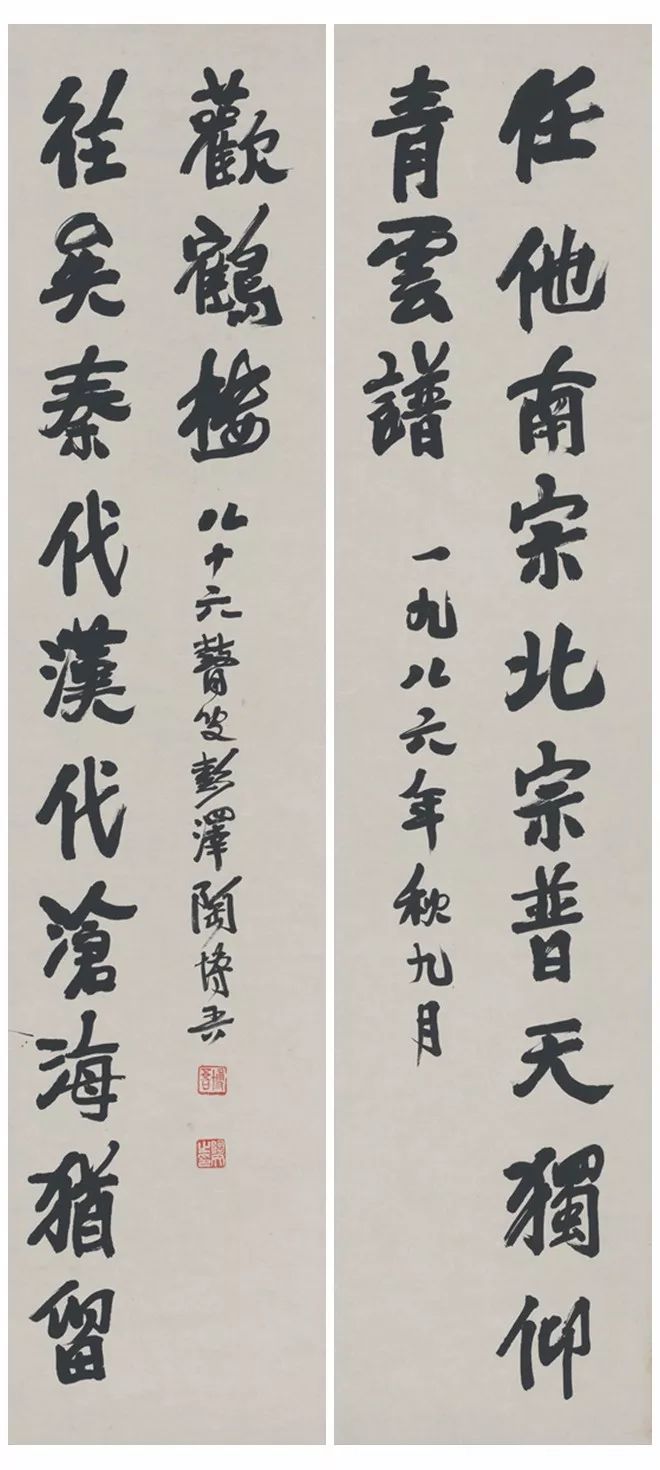 任他南宗北宗普天獨仰
青雲譜
一九八六年秋九月
往矣秦代漢代滄海猶留
歡鶴樓
八十六瞽叟彭澤陶博吾